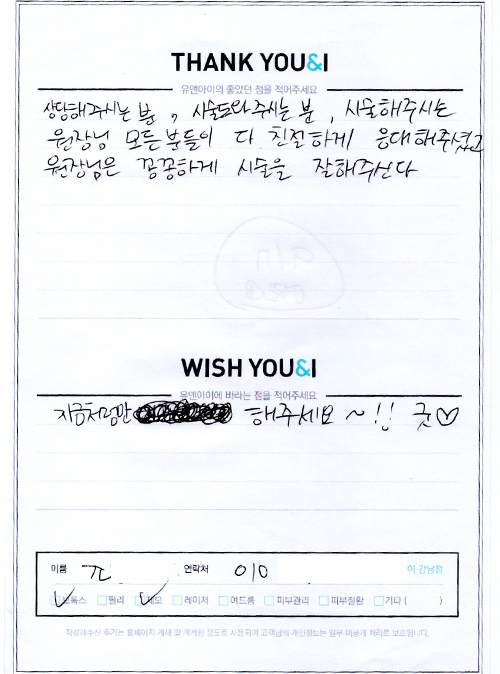 THANK YOU&I
유앤아이의 좋았던 점을 적어주세요
상담해주시는 분, 시술도와주시는 분, 시술해주시는
원장님 모든분들이 다 친절하게 응대해주셨고
원장님은 꼼꼼하게 시술을 잘해주신다
WISH YOU&I
유앤아이에 바라는 점을 적어주세요
지금처럼만 해주세요 ~!! 굿♡
이름 연락처 010 이 강남점
보톡스 필러 제모 레이저 여드름 피부관리 피부질환 기타 ( )
작성해주신 후기는 홈페이지 게재 및 마케팅 용도로 사용되며 고객님의 개인정보는 일부 비공개 처리로 보호됩니다.